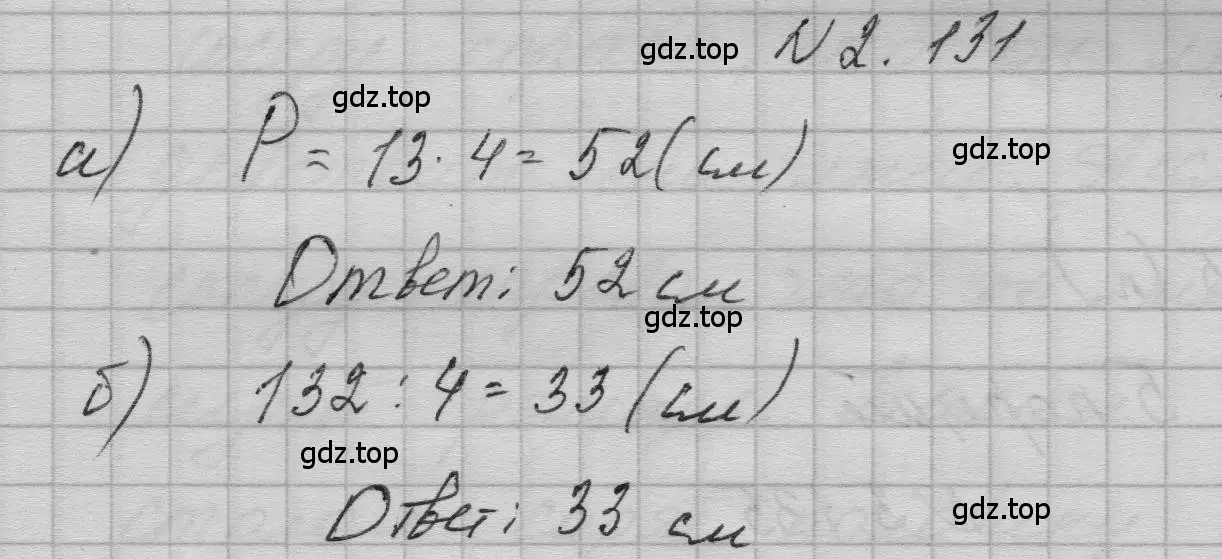 gdz.top № 2.131
gdz.top
а) P = 13 · 4 = 52 (см) gdz.top
Ответ: 52 см
gdz.top
б) 132 : 4 = 33 (см)
gdz.top
Ответ: 33 см gdz.top